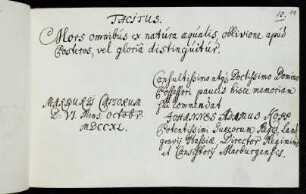 TACITUS.
Mors omnibus ex natura aqualis, oblivione apud
Posteros, vel gloria distinguitur.
Consultissimo atq; Doctissimo Domino
Possessori paucis hisce memoriam
commendat
MARBURGI CATTORUM
D. VI. Mens. Octobr.
MDCCXL.
JOHANNES ADAMUS KOPP
Potentissimi Suecorum Regis, Land
gravii Hassiæ, Director Regiminis
et Consistorii Marburgensis.